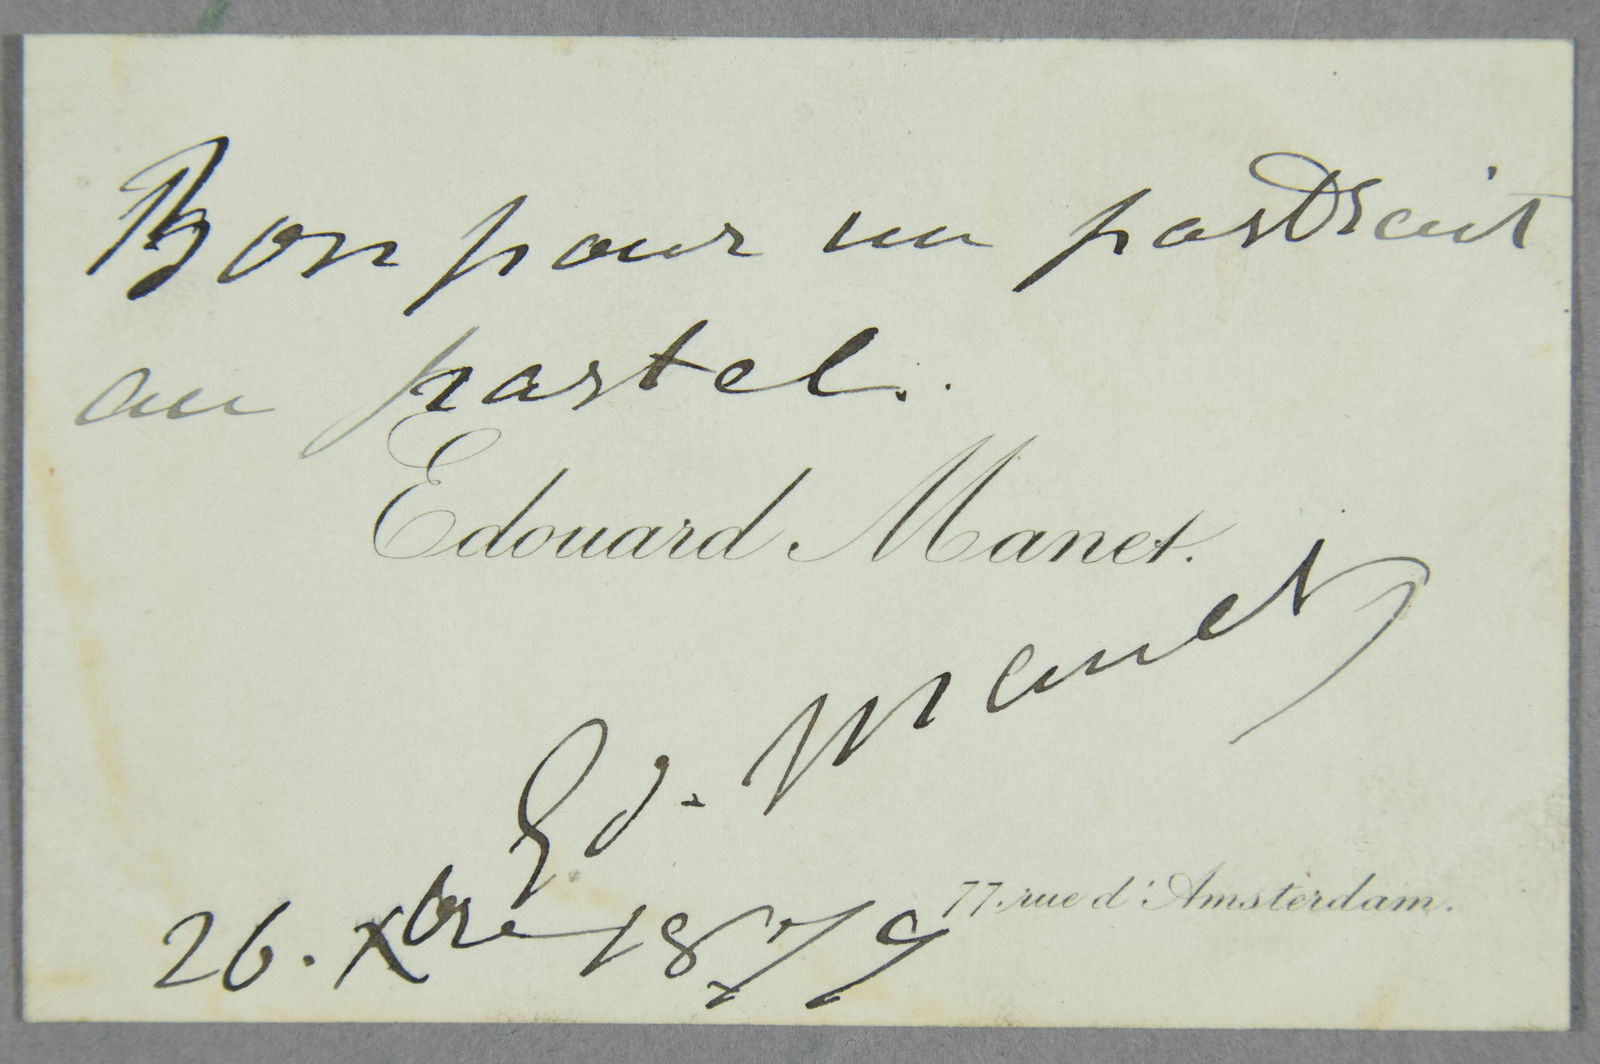 Bon pour un portrait
au pastel.
Edouard Manet.
Ed. Manet
77. rue d'Amsterdam.
26. Xbre 1879